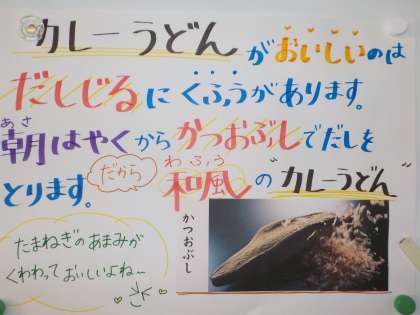 カレーうどんがおいしいのは
だしじるにくふうがあります。
あさ
朝はやくからかつおぶしでだしを
とります。
だから
わふう
和風の"カレーうどん"
かつおぶし
たまねぎのあまみが
くわわっておいしいよね〜